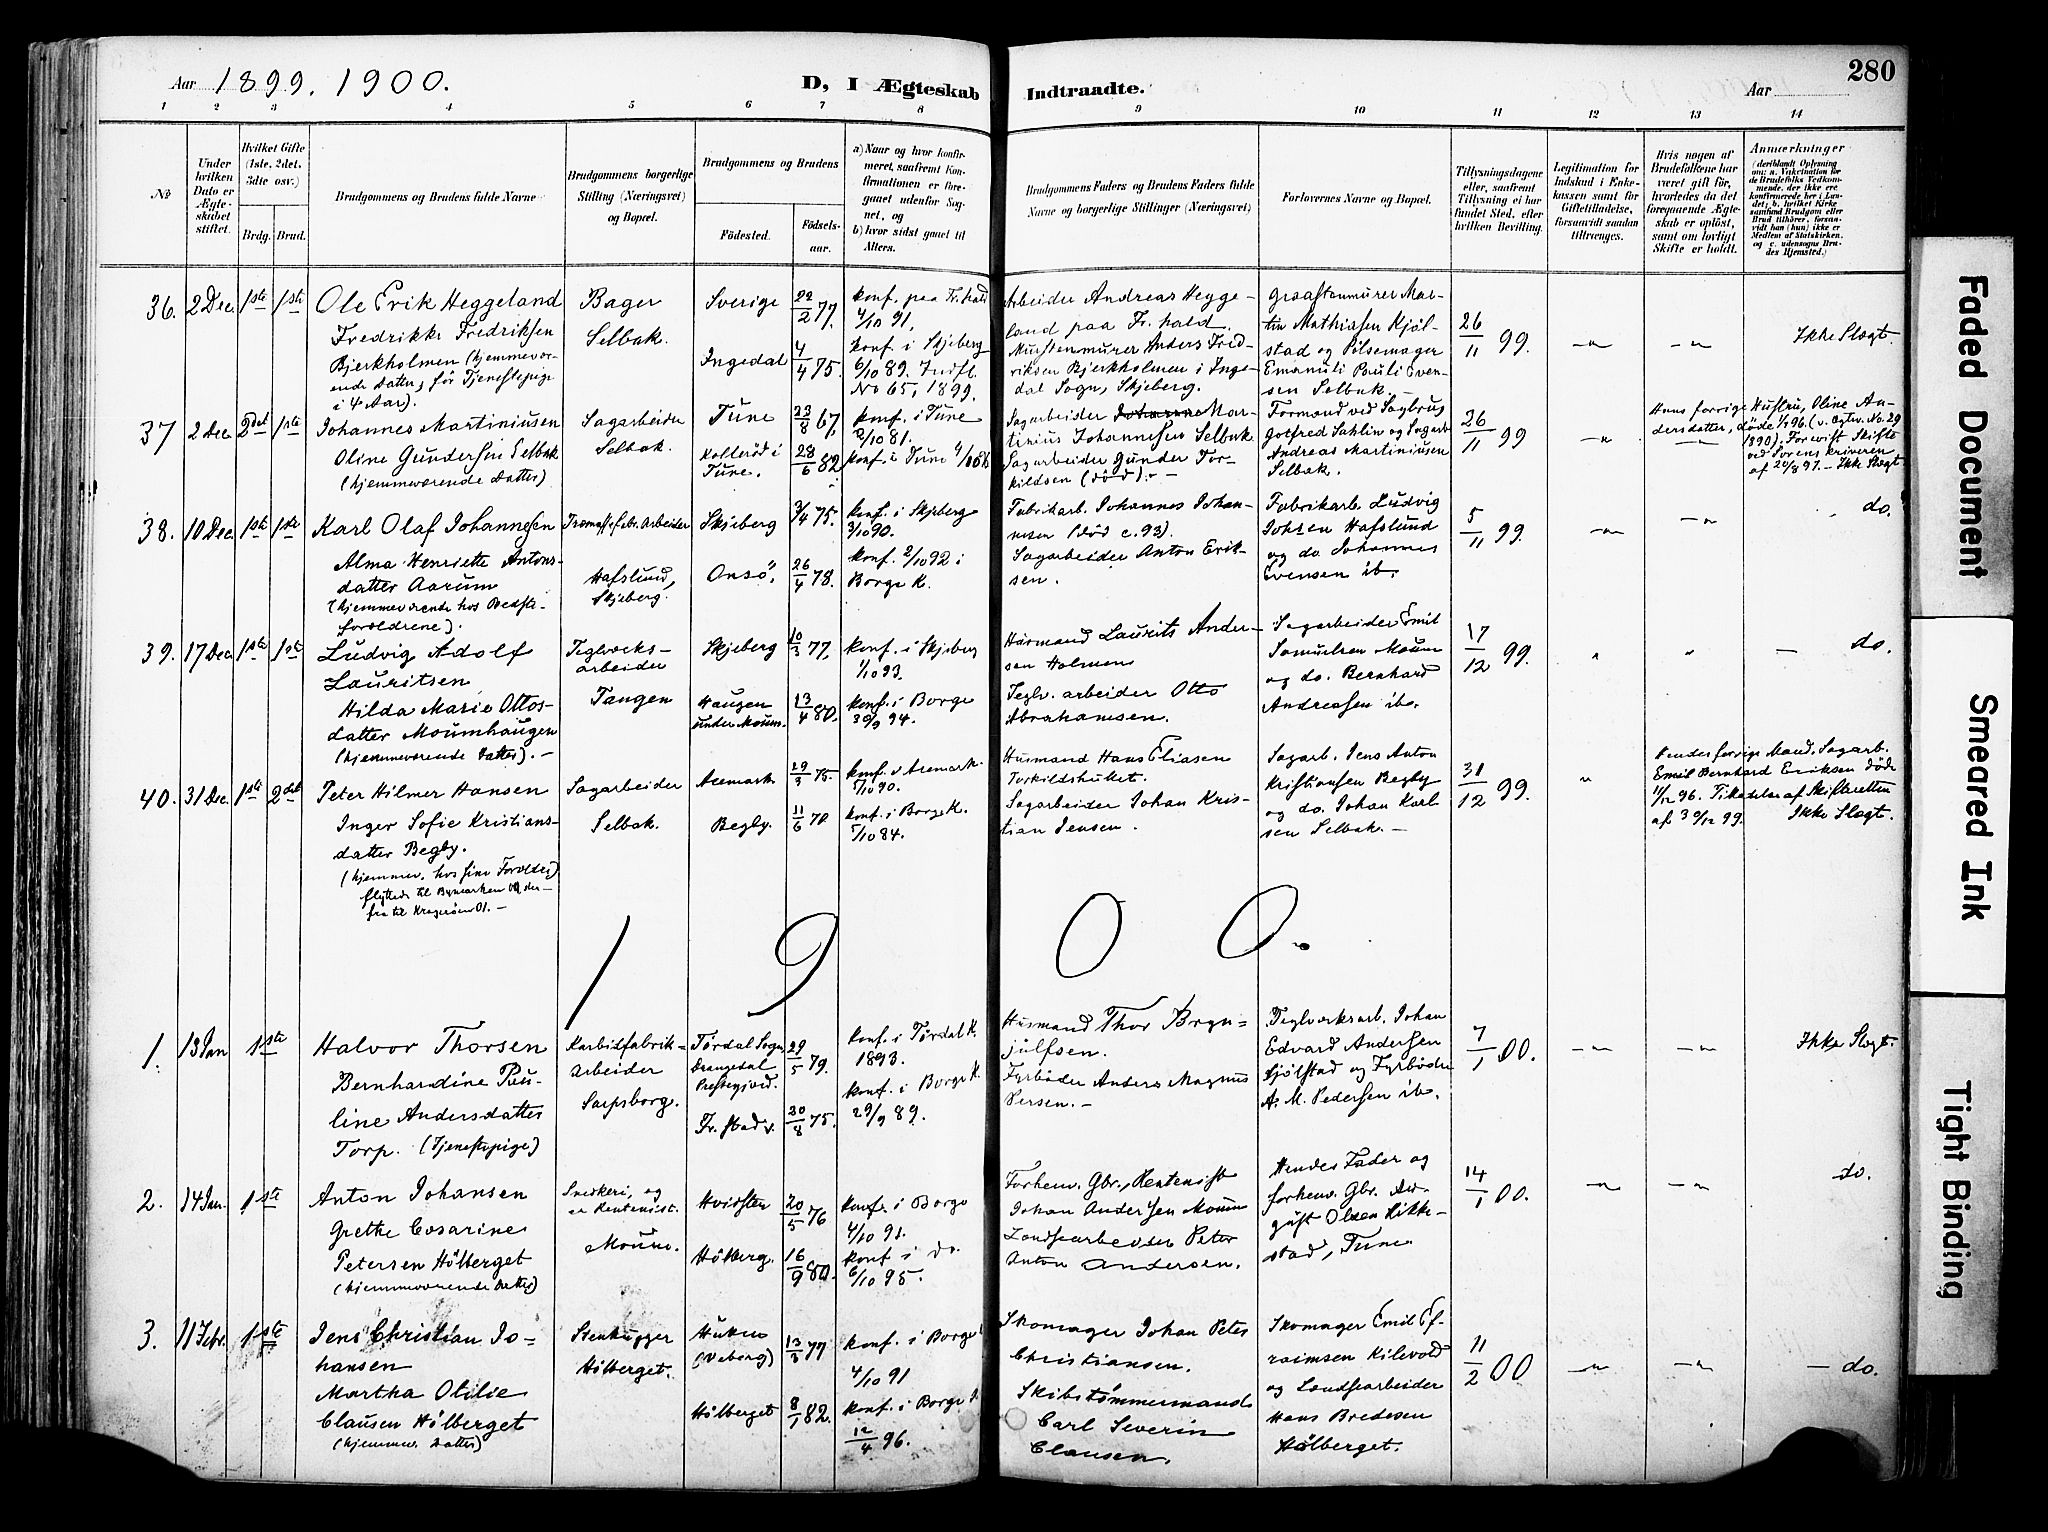 Aar 1899. 1900.
D, I Ægteskab Indtraadte.
Aar
280
1 2 3 4 5 6 7 8 9 10 11 12 13 14
No
Under hvilken Dato er Ægteskabet stiftet.
Hvilket Gifte (1ste, 2det, 3die osv.)
Brdg. Brud.
Brudgommens og Brudens fulde Navne
Brudgommens borgerlige Stilling (Næringsvei) og Bopæl.
Brudgommens og Brudens
Födested.
Födselsaar.
a) Naar og hvor konfirmeret, saafremt Konfirmationen er foregaaet udenfor Sognet, og
b) hvor sidst gaaet til Alters.
Brudgommens Faders og Brudens Faders fulde Navne og borgerlige Stillinger (Næringsvei)
Forlovernes Navne og Bopæl.
Tillysningsdagene eller, saafremt Tillysning ei har fundet Sted, efter hvilken Bevilling.
Legitimation for Indskud i Enkekassen samt for Giftetilladelse, forsaavidt saadan tiltrænges.
Hvis nogen af Brudefolkene har været gift før, hvorledes da det foregaaende Ægteskab er opløst, samt om lovligt Skifte er holdt.
Anmærkninger
(deriblandt Oplysning om: a. Vaksination for de Brudefolks Vedkommende, der ikke ere konfirmerede her i Landet, b. hvilket Kirkesamfund Brudgom eller Brud tilhörer, forsaavidt han (hun) ikke er Medlem af Statskirken, og c. udensogns Brudes Hjemsted.)
36. 2 Dec. 1ste 1ste
Ole Erik Heggeland
Fredrikke Fredriksen
Bjerkholmen (hjemmeværende Datter, før Tjenestepige
i 4 Aar).
Bager
Selbak.
Sverige 22/2 77.
Ingedal 4/4 75.
konf. paa Fr.hald
4/10 91.
konf. i Skjeberg
6/10 89. Indfl.
No 65, 1899.
Arbeider Andreas Heggeland paa Fr.hald.
Murstenmurer Anders Fredriksen Bjerkholmen i Ingedal Sogn, Skjeberg.
Graastenmurer Martin Mathiasen Kjølstad og Pølsemager
Emanuel Pauli Evensen Selbak.
26/11 99.
Ikke Slegt.
37 2 Dec. 2det 1ste
Johannes Martiniusen
Oline Gundersen Selbak
(hjemmeværende Datter)
Sagarbeider
Selbak.
Tune 23/8 67.
Kolterød i Tune. 28/6 82.
konf. i Tune
2/10 81.
konf. i Tune
Sagarbeider Martinius Johannesen Selbak
Sagarbeider Gunder Torkildsen (død).
Formand ved Sagbrug
Gotfred Sahlin og Sagarb.
Andreas Martiniusen
Selbak.
26/11 99
Hans forrige Hustru, Oline Andersdatter, døde
1890). Forevist Skifte
ved Sorenskriveren
af 20/8 97. – Ikke Slegt
38. 10 Dec. 1ste 1ste
Karl Olaf Johannesen
Alma Henriette Antonsdatter Aarum
(hjemmeværende hos Bedsteforældrene).
Træmassefabr. Arbeider
Hafslund,
Skjeberg.
Skjeberg 3/4 75.
Onsö, 26/4 78.
konf. i Skjeberg
3/10 90.
konf. 2/10 92 i
Borge K.
Fabrikarb. Johannes Johannesen (død c. 93).
Sagarbeider Anton Eriksen.
Fabrikarb. Ludvig
Johsen Hafslund
og do Johannes
Evensen ib.
5/11 99.
do.
39. 17 Dec. 1ste 1ste
Ludvig Adolf
Lauritsen
Hilda Marie Ottosdatter Moumhaugen
(hjemmeværende Datter). –
Teglverksarbeider
Tangen
Skjeberg 10/3 77.
Haugen under Moum. 13/4 80.
konf. i Skjeberg
1/10 93.
konf. i Borge
30/9 94.
Husmand Laurits Andersen Holmen
Teglv. arbeider Otto
Abrahamsen.
Sagarbeider Emil
Samuelsen Moum
og do. Bernhard
Andreasen ib.
17/12 99.
do.
40. 31 Dec. 1ste 2det
Peter Hilmer Hansen
Inger Sofie Kristiansdatter Begby.
(hjemmev. hos sine Forældre)
flyttede til Bymarken og derfra til Kragerøen 01. –
Sagarbeider
Selbak.
Aremark 29/3 75.
Begby. 11/6 70
konf. i Aremark.
5/10 90.
konf. i Borge K.
5/10 84.
Husmand Hans Eliasen
Torkildshullet.
Sagarbeider Johan Kristian Jensen.
Sagarb. Jens Anton
Kristiansen Begby
og do. Johan Karlsen Selbak. –
31/12 99.
Hendes forrige Mand, Sagarb.
Emil Bernhard Eriksen døde
11/12 96. Tilladelse af Skifteretten
af 30/12 99. Ikke Slegt.
1900.
1. 13 Jan 1ste
Halvor Thorsen
Bernhardine Pauline Andersdatter
Torp. (Tjenestepige)
Karbidfabrikarbeider
Sarpsborg.
Tørdal Sogn
Drangedal
Prestegjeld. 29/5 79.
Fr.stad. 20/8 75.
konf. i Tørdal K.
1893.
konf. i Borge K.
29/9 89.
Husmand Thor Brynjulfsen.
Fyrbøder Anders Magnus
Persen. –
Teglverksarb. Johan
Edvard Andersen
Kjølstad og Fyrbøder
A. M. Pedersen ib.
7/1 00.
Ikke Slegt.
2. 14 Jan. 1ste
Anton Johansen
Grethe Cesarine
Petersen Hölberget
(hjemmeværende Datter)
Snedker, og
er Rentenist.
Moum.
Hvidsten 20/5 76
Hölberg. 16/9 80.
konf. i Borge
4/10 91.
konf. i do.
6/10 95.
Forhenv. Gbr., Rentenist
Johan Andersen Moum
Landsearbeider Peter
Anton Andersen.
Hendes Fader og
forhenv. Gbr. August Olsen Hikkestad, Tune
14/1 00.
do.
3. 11 Febr. 1ste
Jens Christian Johansen
Martha Otilie
Clausen Hölberget
(hjemmev. Datter)
Stenhugger
Hölberget.
Huken
(Veberg) 13/8 77
Hölberget 8/1 82.
konf. i Borge K.
4/10 91
konf. i Borge K.
12/4 96.
Skomager Johan Peter
Christiansen.
Skibstömmermand
Carl Severin
Clausen.
Skomager Emil Efraimsen Kilevold
og Landsearbeider
Hans Bredesen
Hölberget.
11/2 00
– do.
Faded Document
Smeared Ink
Tight Binding